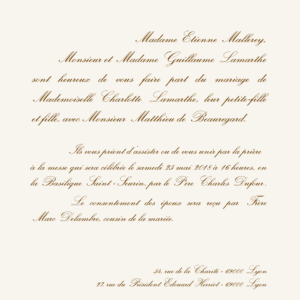 Madame Etienne Mallerey,
Monsieur et Madame Guillaume Lamarthe
sont heureux de vous faire part du mariage de
Mademoiselle Charlotte Lamarthe, leur petite-fille
et fille, avec Monsieur Matthieu de Beauregard.
Ils vous prient d'assister ou de vous unir par la prière
à la messe qui sera célébrée le samedi 25 mai 2018 à 16 heures, en
la Basilique Saint-Seurin, par le Père Charles Dufour.
Le consentement des époux sera reçu par Frère
Marc Delambre, cousin de la mariée.
54, rue de la Charité - 69000 Lyon
27, rue du Président Edouard Herriot - 69000 Lyon